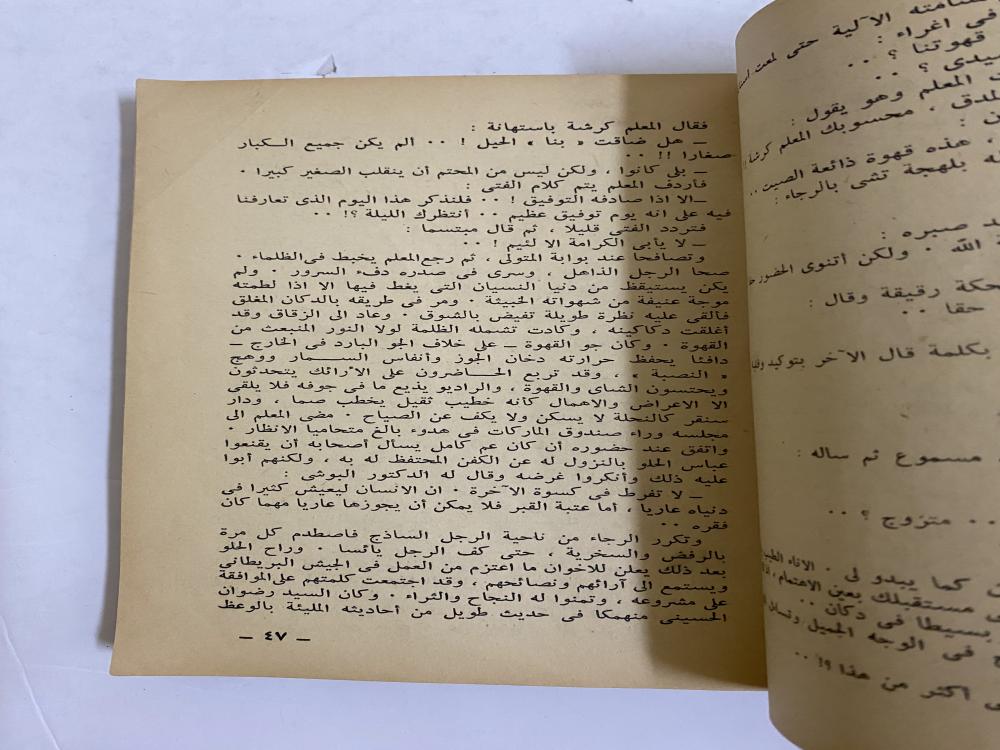 فقال المعلم كرشة باستهانة :
ـ هل ضاقت « بنا » الحيل ! ٠٠ ألم يكن جميع الكبار
صغارا !! ٠٠
ـ بلى كانوا ، ولكن ليس من المحتم أن ينقلب الصغير كبيرا ٠
فأردف المعلم يتم كلام الفتى :
ـ الا اذا صادفه التوفيق ! ٠٠ فلنذكر هذا اليوم الذى تعارفنا
فيه على انه يوم توفيق عظيم ٠٠ أنتظرك الليلة ؟! ٠٠
فتردد الفتى قليلا ، ثم قال مبتسما :
ـ لا يأبى الكرامة الا لئيم ! ٠٠
وتصافحا عند بوابة المتولى ، ثم رجع المعلم يخبط فى الظلماء ٠
صحا الرجل الذاهل ، وسرى فى صدره دفء السرور ٠ ولم
يكن يستيقظ من دنيا النسيان التى يغط فيها الا اذا لطمته
موجة عنيفة من شهواته الخبيثة ٠ ومر فى طريقه بالدكان المغلق
فألقى عليه نظرة طويلة تفيض بالشوق ٠ وعاد الى الزقاق وقد
أغلقت دكاكينه ، وكادت تشمله الظلمة لولا النور المنبعث من
القهوة ٠ وكان جو القهوة ـ على خلاف الجو البارد فى الخارج ـ
دافئا يحفظ حرارته دخان الجوز وأنفاس السـمار ووهج
« النصبة » ٠ وقد تربع الحـاضرون على الأرائك يتحدثون
ويحتسون الشاى والقهوة ، والراديو يذيع ما فى جوفه فلا يلقى
الا الاعراض والاهمال كأنه خطيب ثقيل يخطب صما ، ودار
سنقر كالنحلة لا يسكن ولا يكف عن الصياح ٠ مضى المعلم الى
مجلسه وراء صندوق الماركات فى هدوء بالغ متحاميا الانظار ٠
واتفق عند حضوره أن كان عم كامل يسأل أصحابه أن يقنعوا
عباس الحلو بالنزول له عن الكفن المحتفظ له به ، ولكنهم أبوا
عليه ذلك وأنكروا غرضه وقال له الدكتور البوشى :
ـ لا تفرط فى كسوة الآخرة ٠ ان الانسان ليعيش كثيرا فى
دنياه عاريا ، أما عتبة القبر فلا يمكن أن يجوزها عاريا مهما كان
فقره ٠٠
وتكرر الرجاء من ناحية الرجل الساذج فاصطدم كل مرة
بالرفض والسخرية ، حتى كف الرجل يائسا ٠ وراح الحلو
بعد ذلك يعلن للاخوان ما اعتزم من العمل فى الجيش البريطانى
ويستمع الى آرائهم ونصائحهم ، وقد اجتمعت كلمتهم على الموافقة
على مشروعه ، وتمنوا له النجاح والثراء ٠ وكان السيد رضوان
الحسينى منهمكا فى حديث طويل من أحاديثه المليئة بالوعظ
ـ ٤٧ ـ
الآلية حتى لمعت
فى اغراء :
قهوتنا ؟ ٠٠
سيدى ؟ ٠٠
المعلم وهو يقول :
المدق ٠ محسوبك المعلم كرشة !!
، هذه قهوة ذائعة الصيت ٠٠
بلهجة تشى بالرجاء :
صبره :
الله ٠ ولكن أتنوى الحضور
رقيقة وقال :
حقا ٠٠
بكلمة قال الآخر بتوكيد
مسموع ثم سأله :
٠٠ متزوج ؟ ٠٠
كما يبدو لى ٠ الاناء
مستقبلك بعين الاهتمام ،
بسيطا فى دكان ٠٠
فى الوجه الجميل
أكثر من هذا ؟! ٠٠